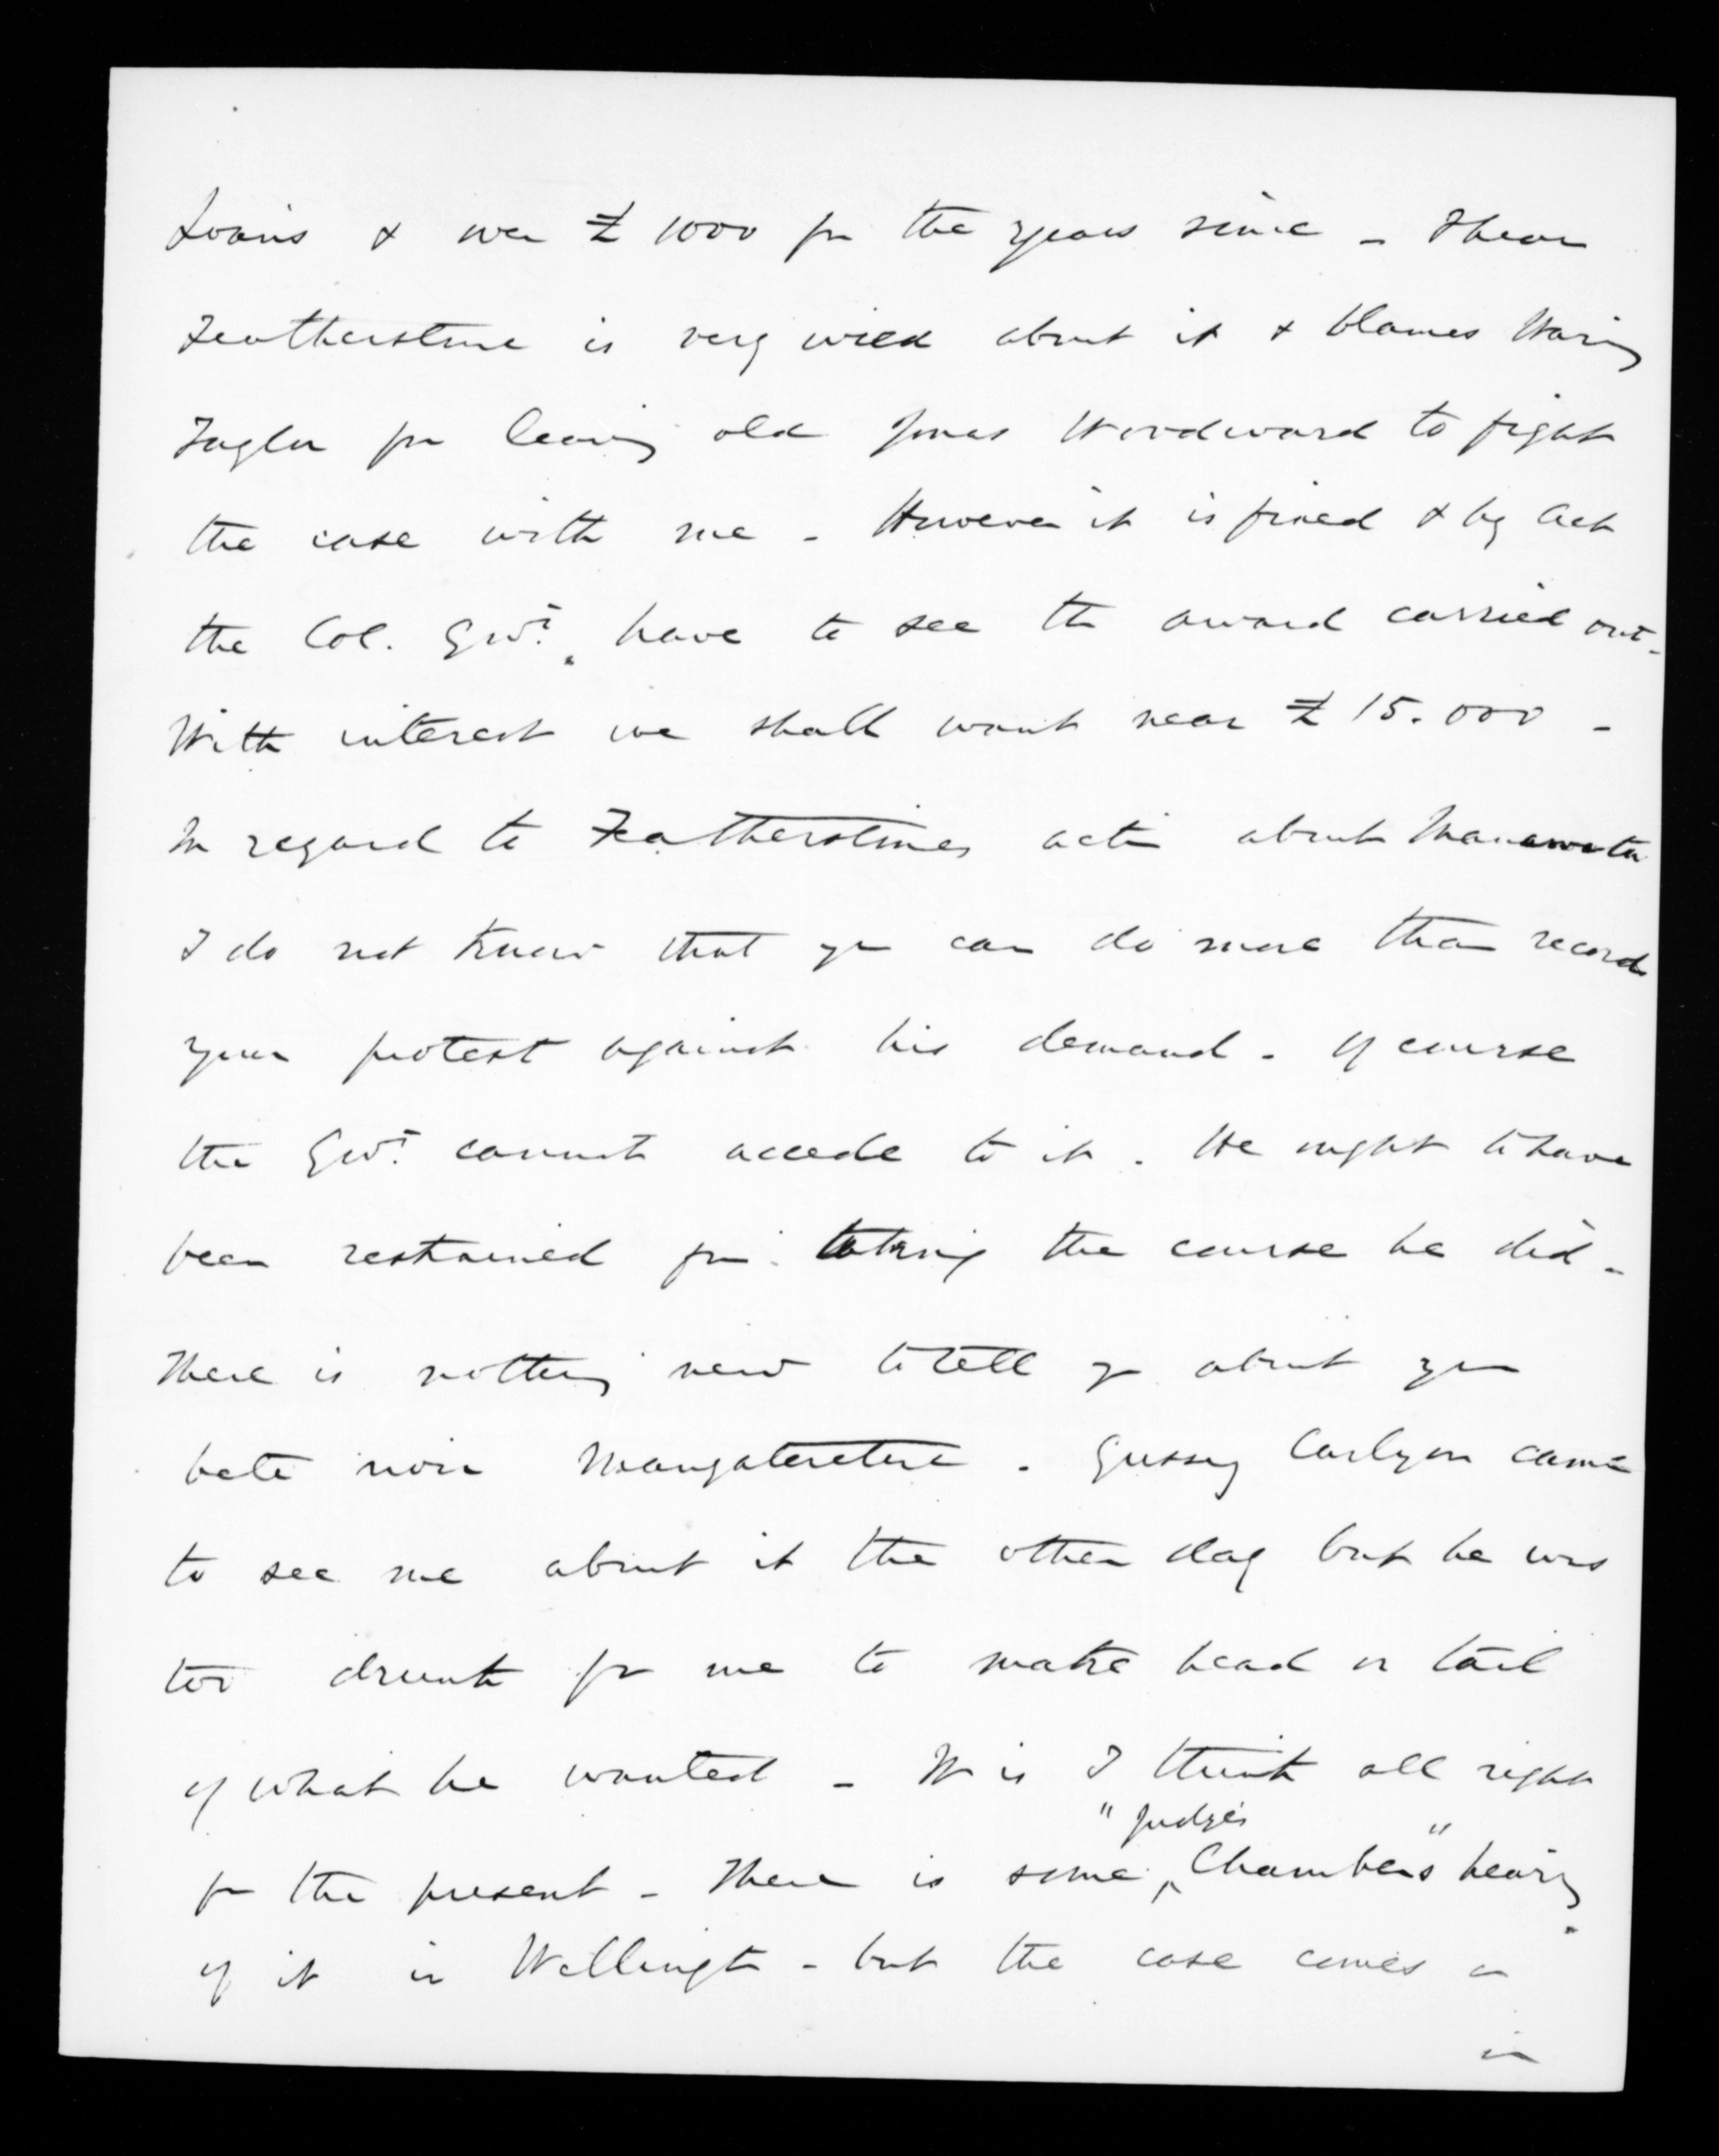 Loans & over £1000 for the years since - I hear
Featherstone is very wild about it & blames Waring
Taylor for leaving old Jonas Woodward to fight
the case with me - However it is fixed & by Act
the Col. Govt. have to see the award carried out -
With interest we shall want near £15.000 -
In regard to Featherstones action about Manawatu
I do not know that you can do more than record
your protest against his demand - Of course
the Govt. cannot accede to it. He ought to have
been restrained from taking the course he did -
There is nothing new to tell you about your
bete noir Mangateretere. Gussy Carlyon came
to see me about it the other day but he was
too drunk for me to make head or tail
of what he wanted - It is I think all right
for the present - There is some "Judge's Chambers" hearing
of it in Wellington - but the case comes on
in